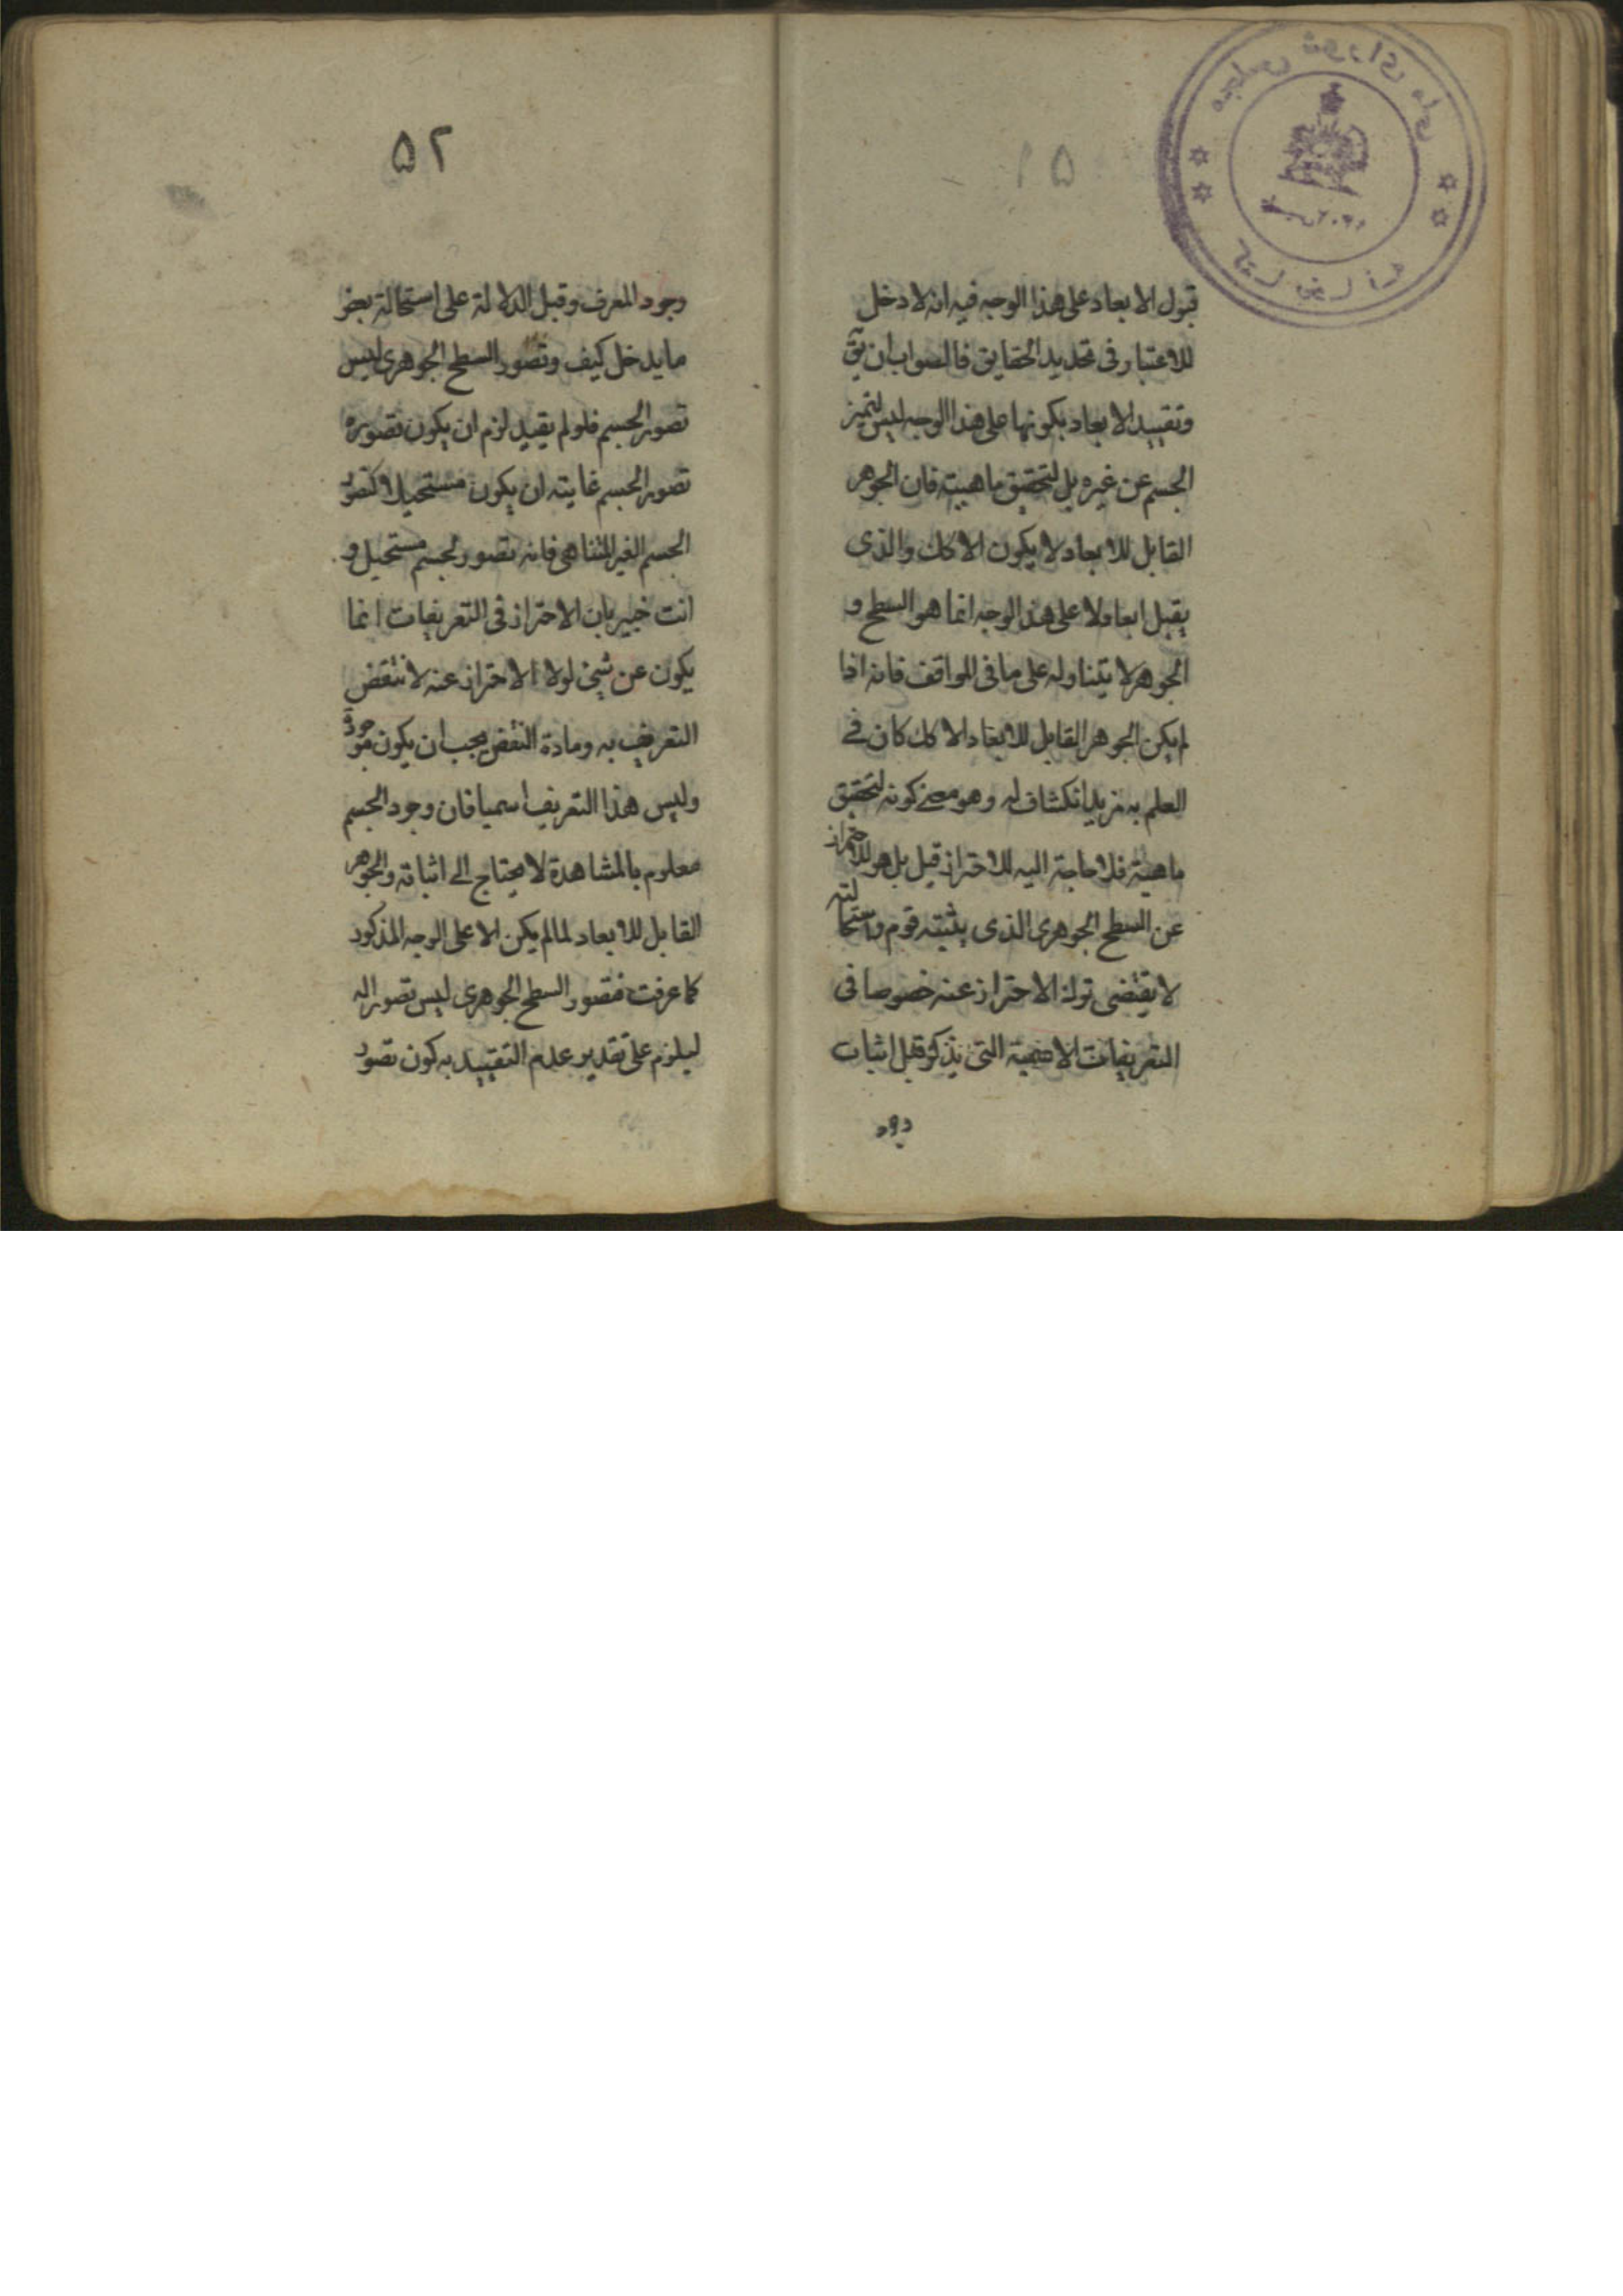 ۵۱
قبول الابعاد على هذا الوجه فيه انه لا دخل
للاعتبار فى تحديد الحقايق فالصواب ان يق
وتقييد الابعاد بكونها على هذا الوجه ليس لتميز
الجسم عن غيره بل لتحقيق ماهيته فان الجوهر
القابل للابعاد لا يكون الا كك والذى
يقبل ابعادا لا على هذ الوجه انما هو السطح و
الجوهر لا يتناوله على ما فى المواقف فانه اذا
لم يكن الجوهر القابل للابعاد الا كك كان فى
العلم به مزيد انكشاف له وهو معنى كونه لتحقيق
ماهيته فلا حاجة اليه للاحتراز قيل بل هو للاحتراز
عن السطح الجوهرى الذى يثبته قوم واستحالته
لا يقتضى ترك الاحتراز عنه خصوصا فى
التعريفات الاسمية التى يذكر قبل اثبات
وجود
۵۲
وجود المعرف وقبل الدلالة على استحالة بعض
ما يدخل كيف وتصور السطح الجوهرى ليس
تصور الجسم فلو لم يقيد لزم ان يكون تصوره
تصور الجسم غايته ان يكون مستحيلا كتصور
الجسم الغير المتناهى فانه تصور لجسم مستحيل و
انت خبير بان الاحتراز فى التعريفات انما
يكون عن شئ لولا الاحتراز عنه لانتقض
التعريف به ومادة النقض يجب ان يكون موجودة
وليس هذا التعريف اسميا فان وجود الجسم
معلوم بالمشاهدة لا يحتاج الى اثباته والجوهر
القابل للابعاد لما لم يكن الا على الوجه المذكور
كما عرفت فتصور السطح الجوهرى ليس تصورا له
ليلزم على تقدير عدم التقييد به كون تصور